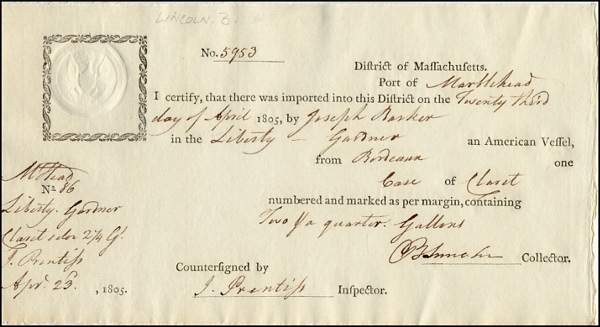 LINCOLN. B.
No. 5953
District of Massachusetts.
Port of Marblehead
I certify, that there was imported into this District on the Twenty third
day of April 1805, by Joseph Barker
in the Liberty - Gardner an American Vessel,
from Bordeaux one
Case of Claret
numbered and marked as per margin, containing
Two & a quarter Gallons
Collector.
Countersigned by
J. Prentiss Inspector.
No. 86
Liberty. Gardner
Claret 2 1/4 Gs.
J. Prentiss
Apr. 23, 1805.